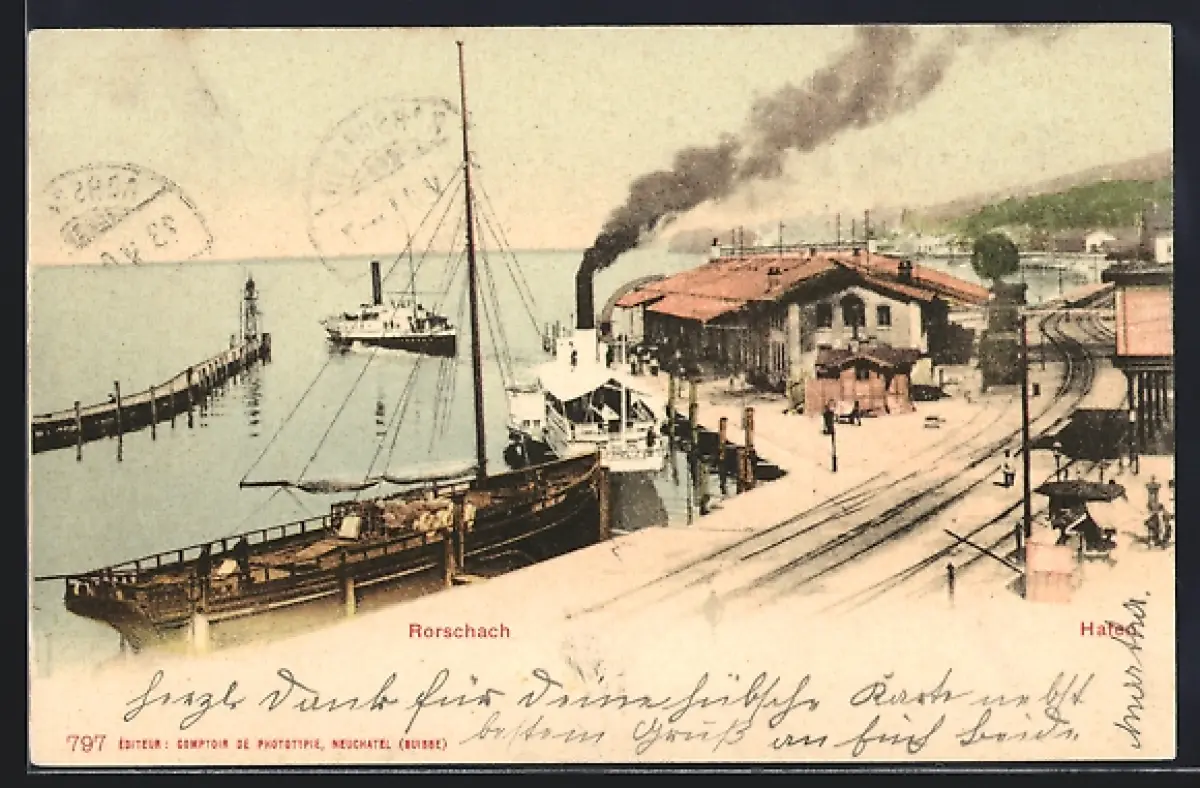 Rorschach
Hafen
Herzl Dank für Deine hübsche Karte nebst
bestem Gruß an Euch beide
797 ÉDITEUR: COMPTOIR DE PHOTOTYPIE, NEUCHATEL (SUISSE)